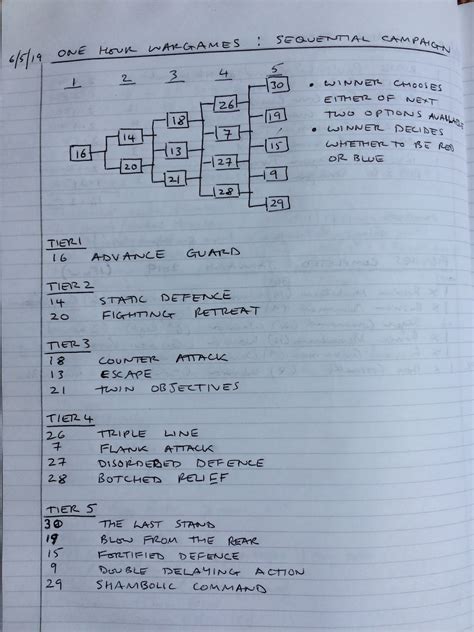 6/5/19 ONE HOUR WARGAMES : SEQUENTIAL CAMPAIGN
1 2 3 4 5
30
26
18 19
14 7
16 13 15
20 27
21 9
28
29
• WINNER CHOOSES
EITHER OF NEXT
TWO OPTIONS AVAILABLE
• WINNER DECIDES
WHETHER TO BE RED
OR BLUE
TIER 1
16 ADVANCE GUARD
TIER 2
14 STATIC DEFENCE
20 FIGHTING RETREAT
TIER 3
18 COUNTER ATTACK
13 ESCAPE
21 TWIN OBJECTIVES
TIER 4
26 TRIPLE LINE
7 FLANK ATTACK
27 DISORDERED DEFENCE
28 BOTCHED RELIEF
TIER 5
30 THE LAST STAND
19 BLOW FROM THE REAR
15 FORTIFIED DEFENCE
9 DOUBLE DELAYING ACTION
29 SHAMBOLIC COMMAND